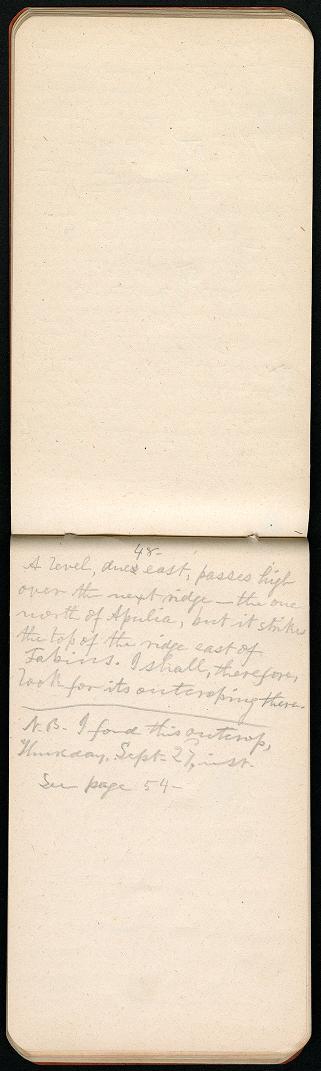 48-
A level, due east, passes high
over the next ridge — the one
north of Apulia, but it strikes
the top of the ridge east of
Fabius. I shall, therefore,
look for its outcroping there.
N.B. I found this outcrop,
Thursday, Sept. 27, inst.
See page 54-